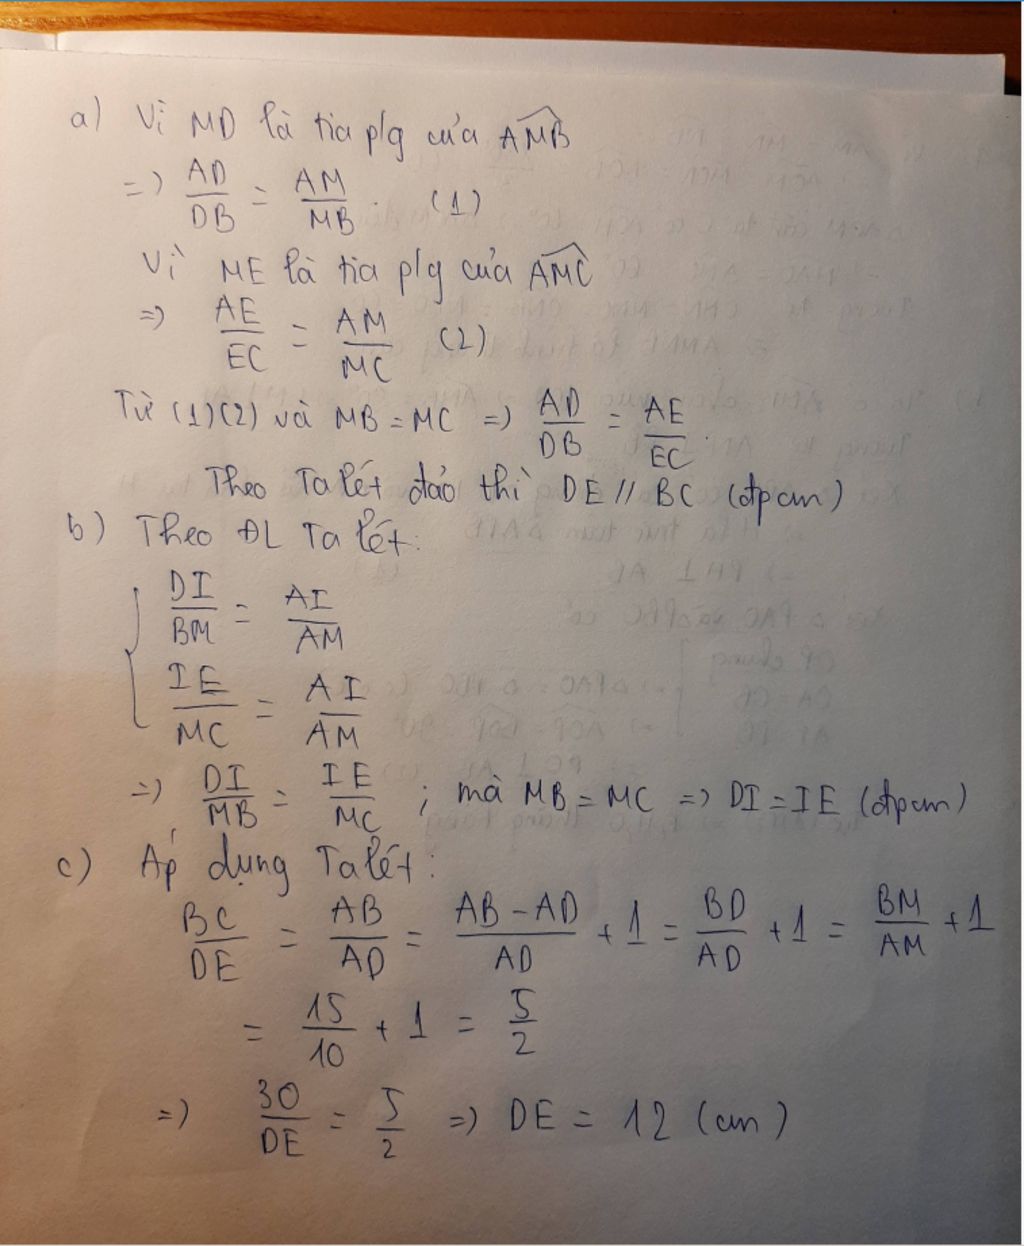 a) Vì MD là tia p/g của \widehat{AMB}
=> \frac{AD}{DB} = \frac{AM}{MB}. (1)
Vì ME là tia p/g của \widehat{AMC}
=> \frac{AE}{EC} = \frac{AM}{MC} (2)
Từ (1)(2) và MB = MC => \frac{AD}{DB} = \frac{AE}{EC}.
Theo Ta lét đảo thì DE // BC (đpcm)
b) Theo ĐL Ta lét:
\frac{DI}{BM} = \frac{AI}{AM}
\frac{IE}{MC} = \frac{AI}{AM}
=> \frac{DI}{MB} = \frac{IE}{MC} ; mà MB = MC => DI = IE (đpcm)
c) Áp dụng Ta lét:
\frac{BC}{DE} = \frac{AB}{AD} = \frac{AB - AD}{AD} + 1 = \frac{BD}{AD} + 1 = \frac{BM}{AM} + 1
= \frac{15}{10} + 1 = \frac{5}{2}
=> \frac{30}{DE} = \frac{5}{2} => DE = 12 (cm)